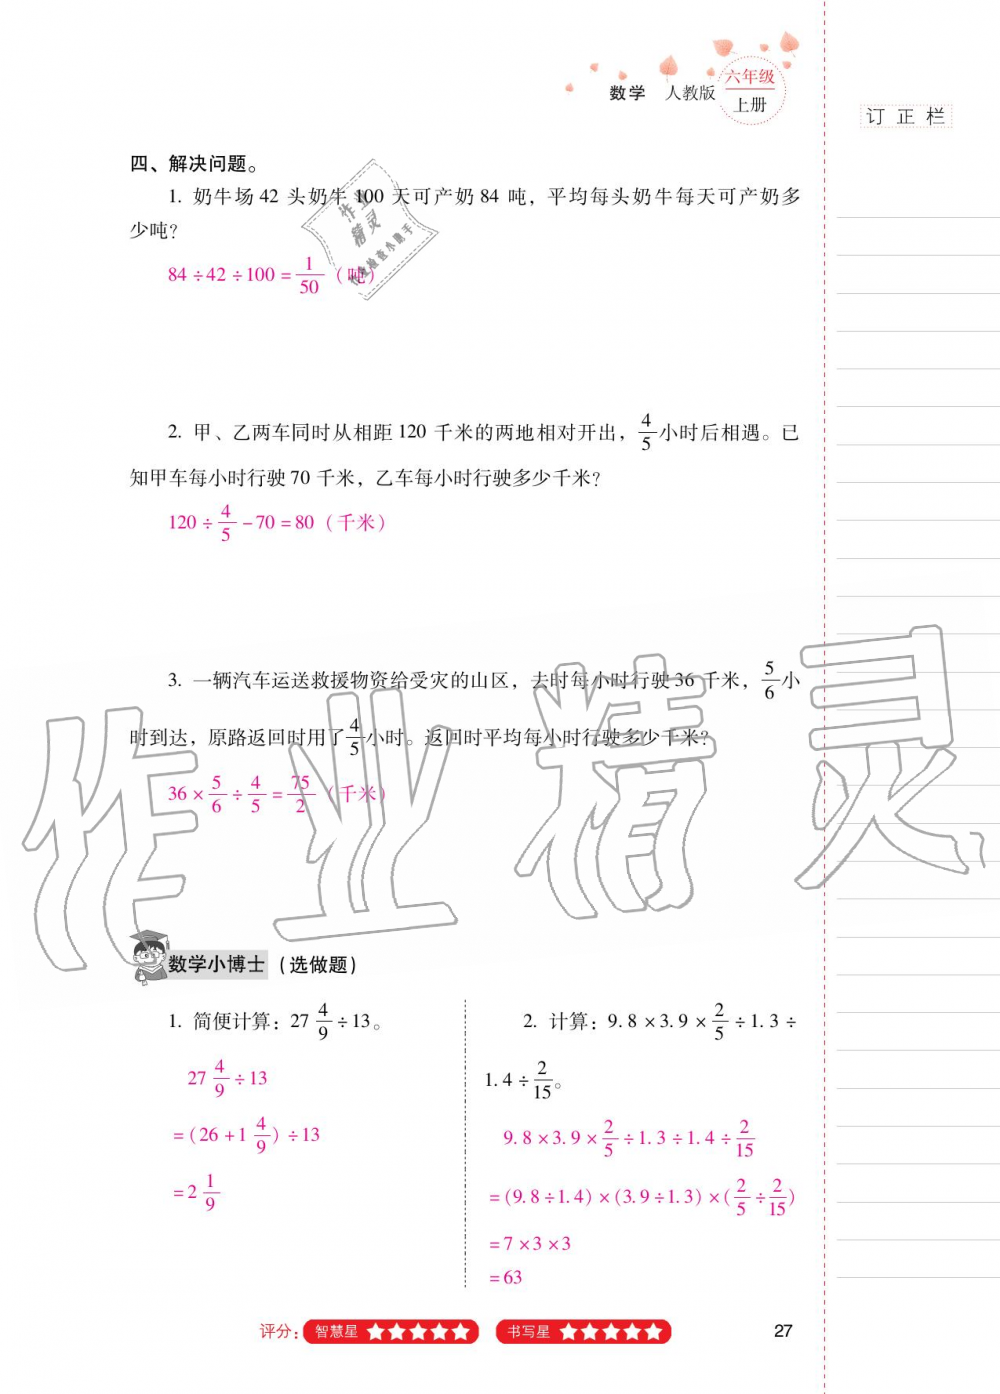 数学 人教版 六年级
上册
订正栏
四、解决问题。
1. 奶牛场 42 头奶牛 100 天可产奶 84 吨，平均每头奶牛每天可产奶多
少吨？
84÷42÷100=1/50（吨）
2. 甲、乙两车同时从相距 120 千米的两地相对开出，4/5小时后相遇。已
知甲车每小时行驶 70 千米，乙车每小时行驶多少千米？
120÷4/5-70=80（千米）
3. 一辆汽车运送救援物资给受灾的山区，去时每小时行驶 36 千米，5/6小
时到达，原路返回时用了4/5小时。返回时平均每小时行驶多少千米？
36×5/6÷4/5=75/2（千米）
作业精灵
数学小博士（选做题）
1. 简便计算：27 4/9÷13。
27 4/9÷13
=(26+1 4/9)÷13
=2 1/9
2. 计算：9.8×3.9×2/5÷1.3÷
1.4÷2/15。
9.8×3.9×2/5÷1.3÷1.4÷2/15
=(9.8÷1.4)×(3.9÷1.3)×(2/5÷2/15)
=7×3×3
=63
评分：智慧星★★★★★ 书写星★★★★★
27